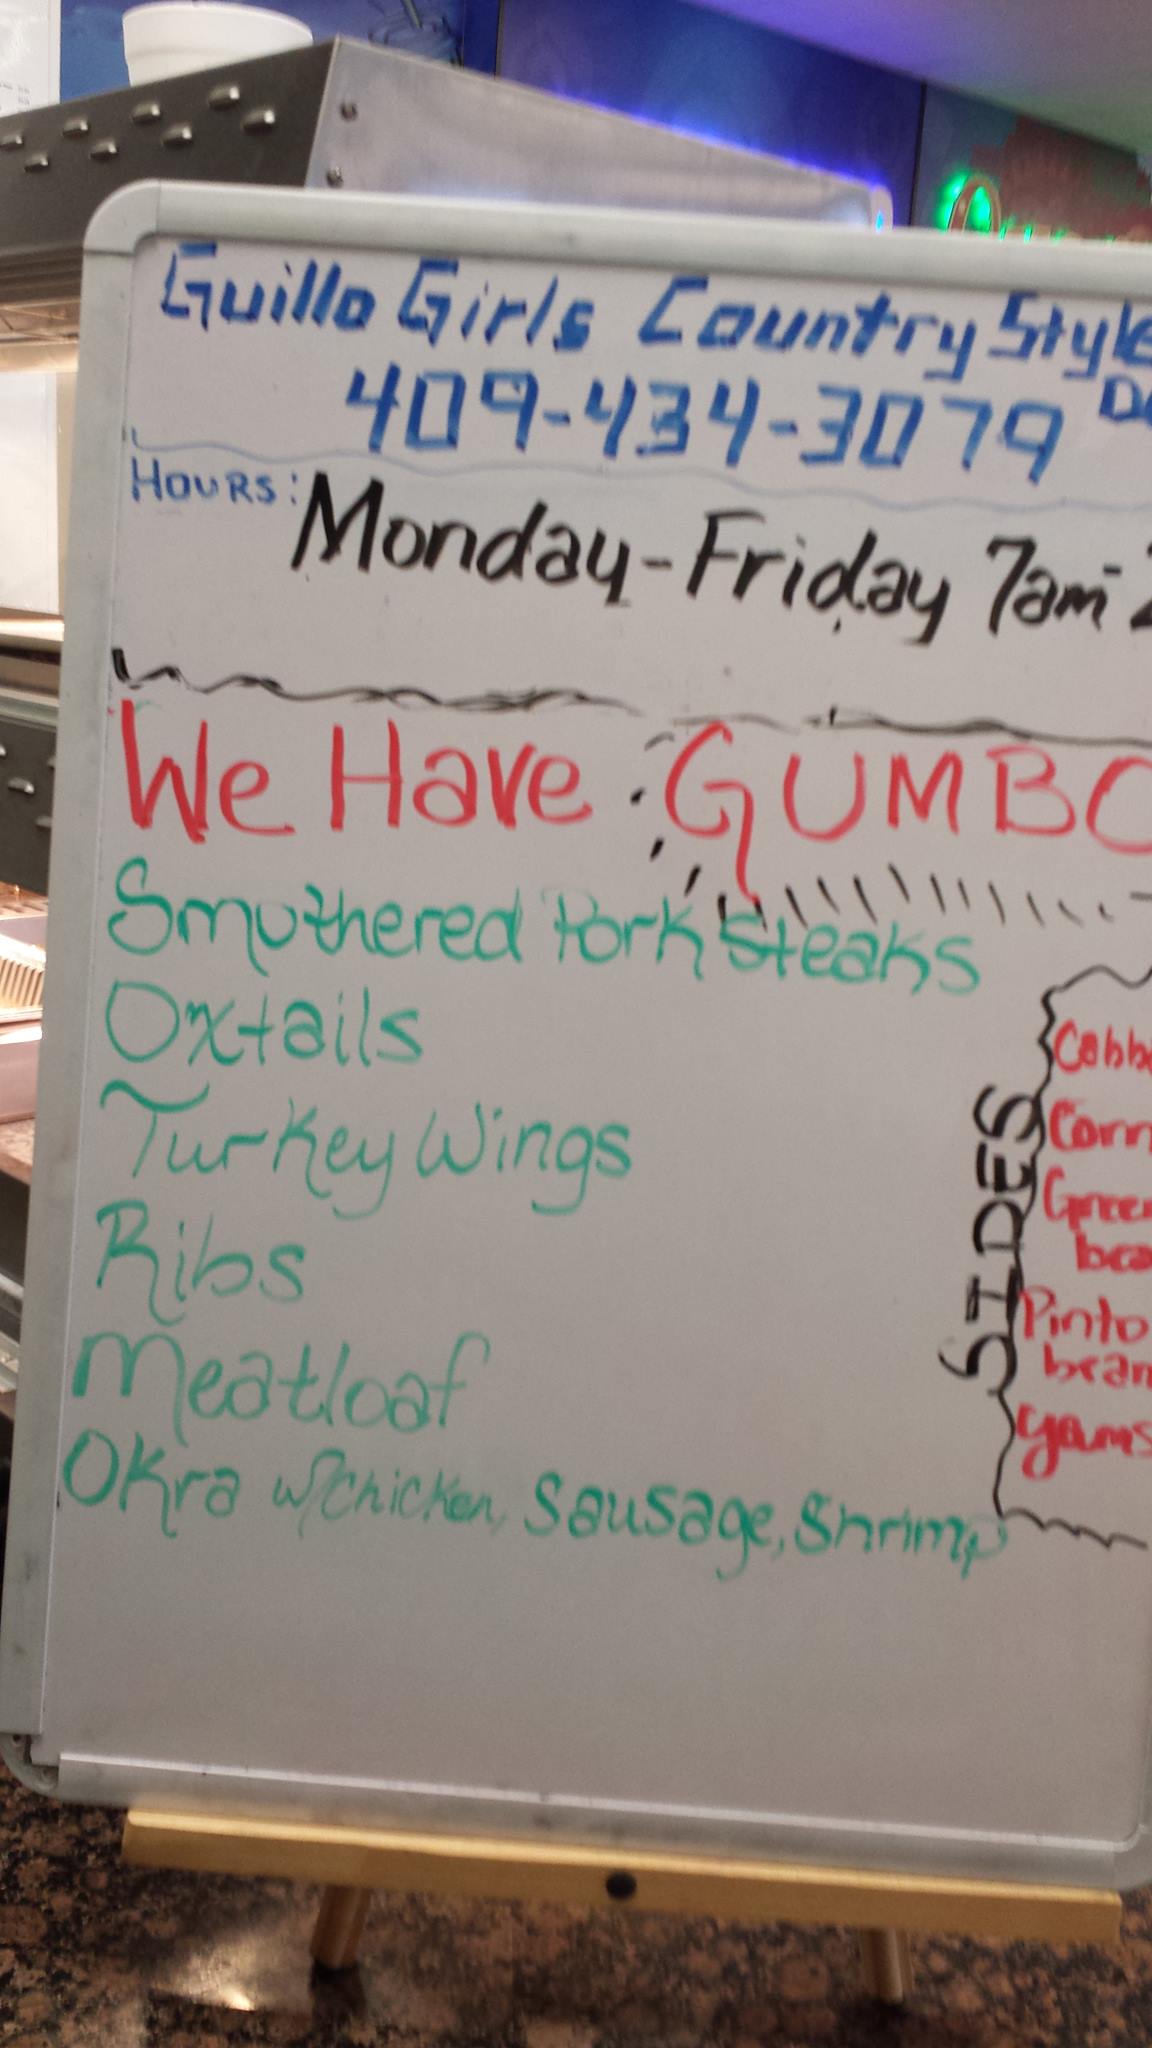 Guillo Girls Country Style
409-434-3079
HOURS: Monday-Friday 7am-
We Have GUMBO
Smothered Pork Steaks
Oxtails
Turkey Wings
Ribs
Meatloaf
Okra w/chicken, Sausage, Shrimp
SIDES
Corn
Green
Pinto
yams